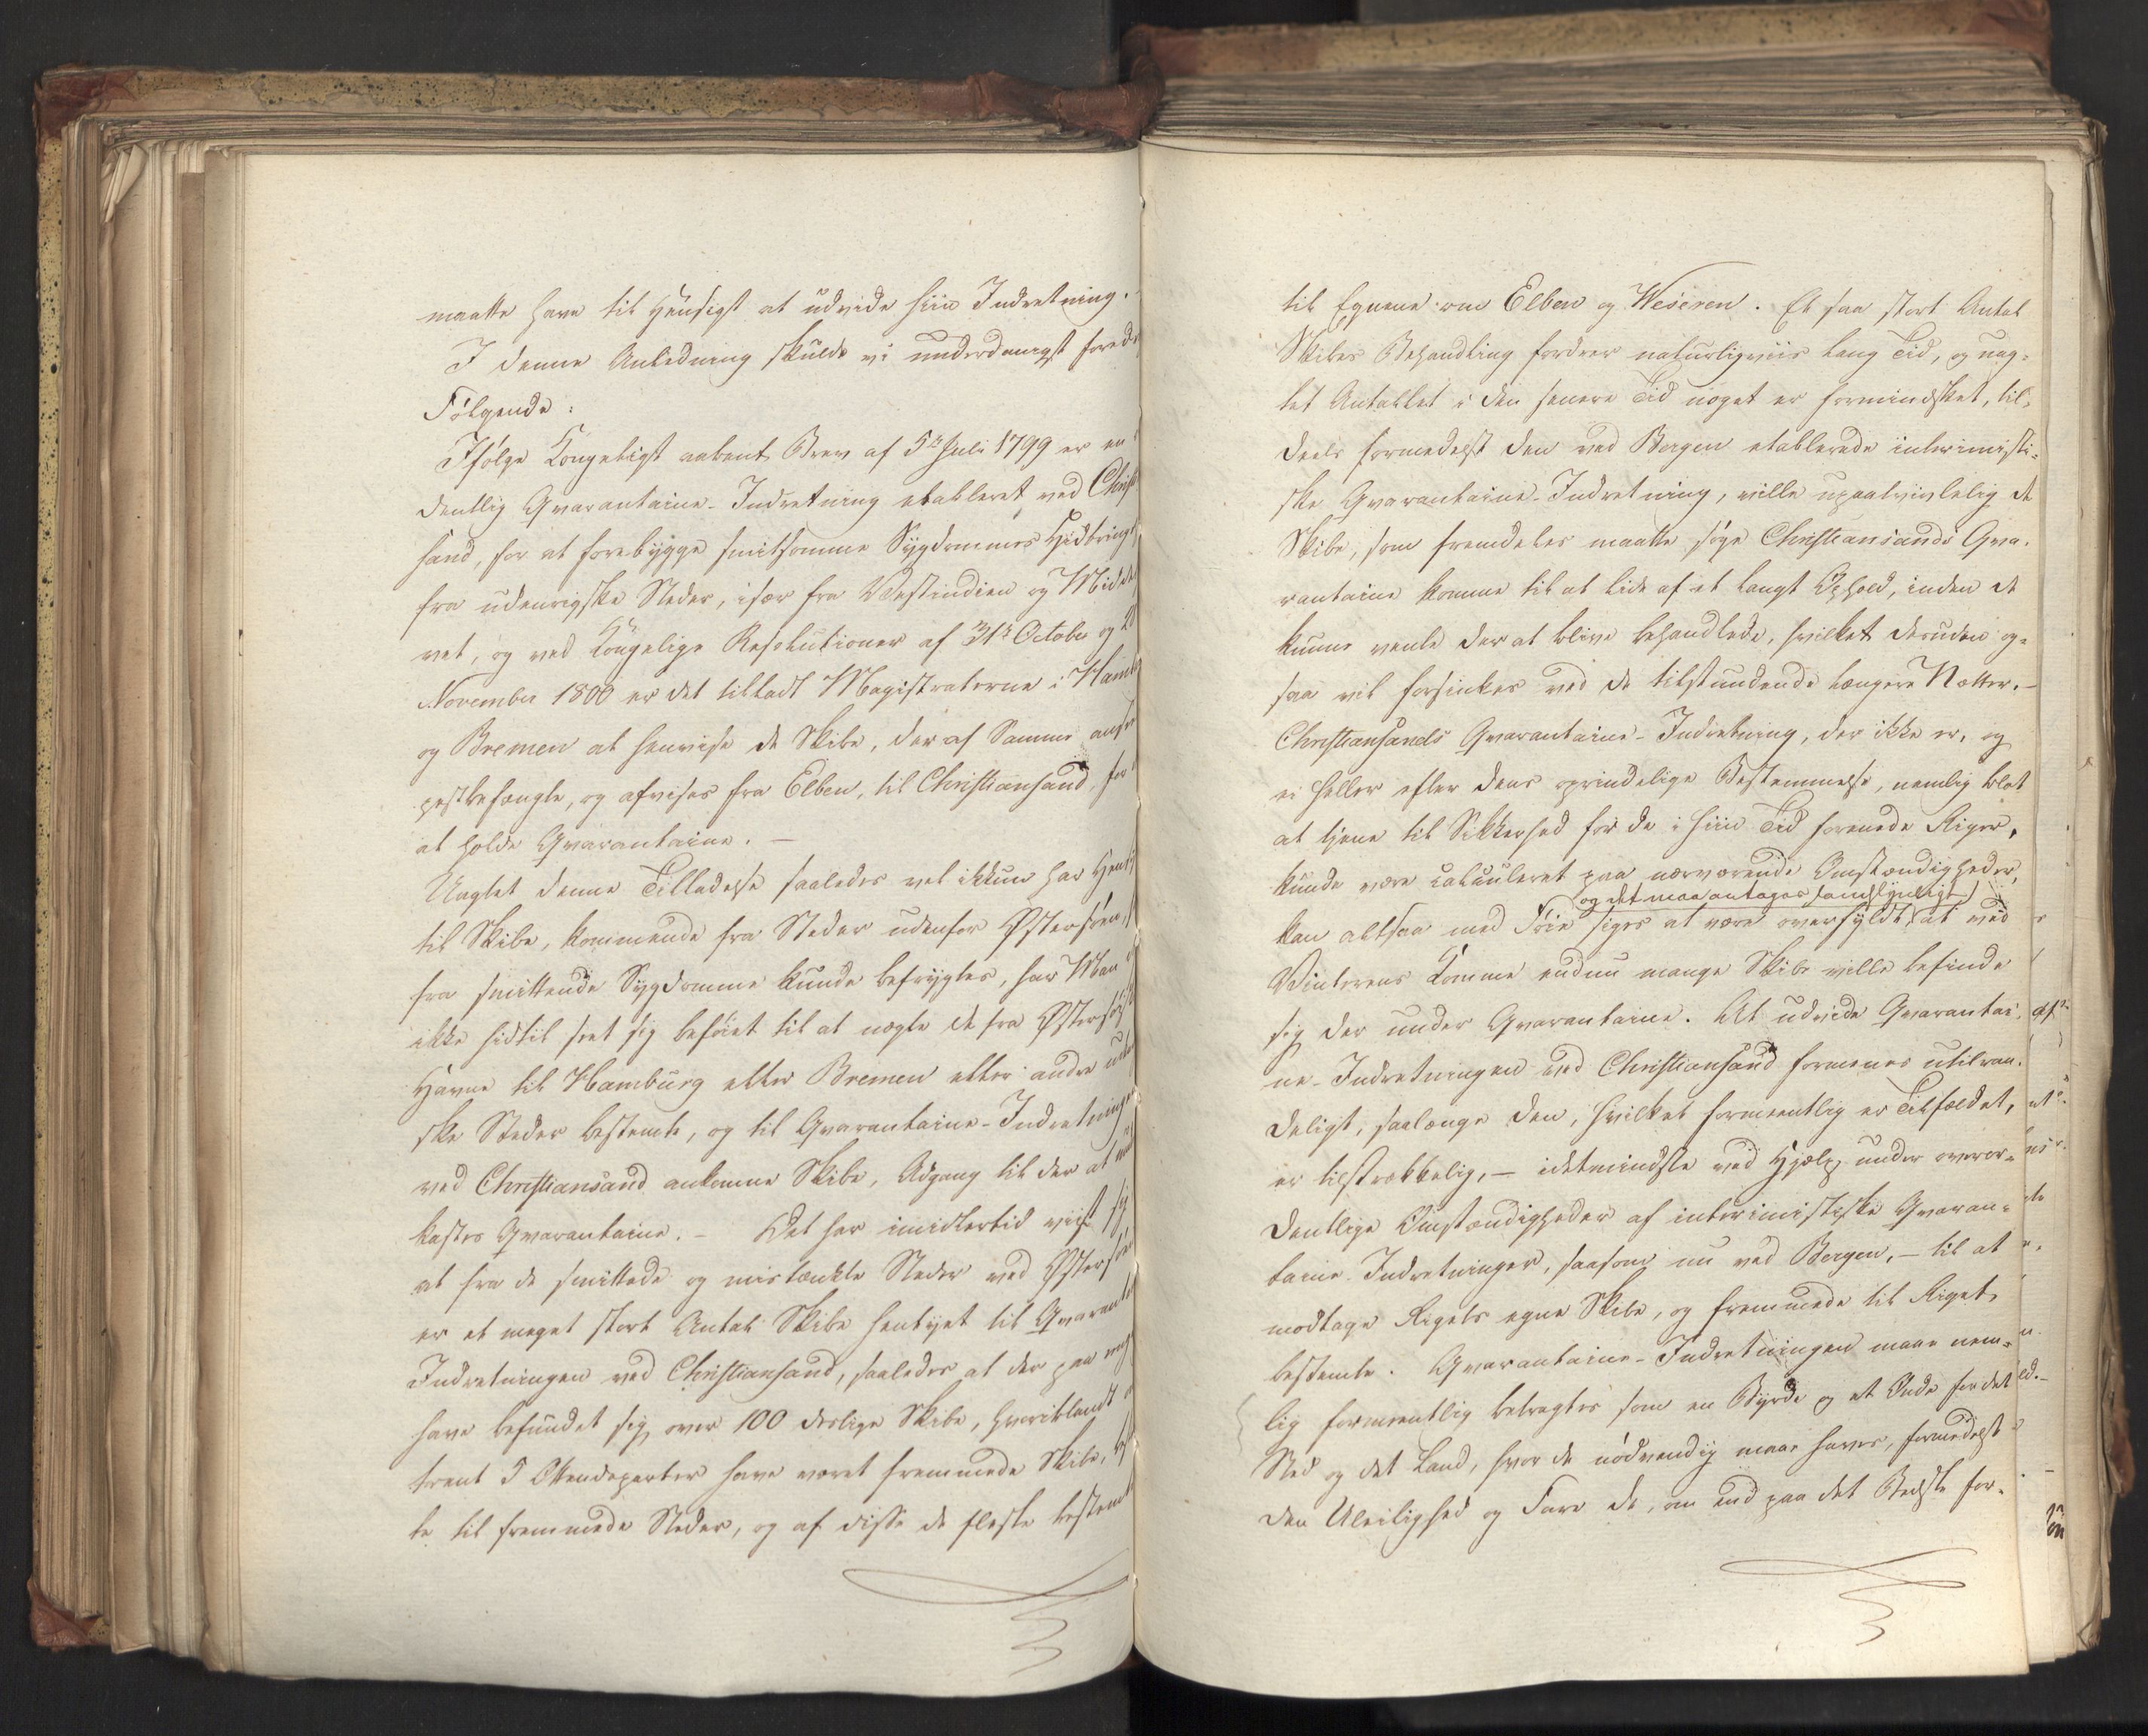 maatte have til Hensigt at udvide hiin Indretning.
I denne Anledning skulde vi underdanigst fored
Følgende:
Ifølge Kongeligt aabent Brev af 5te Juli 1799 er en
dentlig Qvarantaine-Indretning etableret ved Christ
sand, for at forebygge smitsomme Sygdommes Hidbring
fra udenrigske Steder, især fra Vestindien og Middel
vet, og ved Kongelige Resolutioner af 31te October og 28
November 1800 er det tilladt Magistraterne i Hamb
og Bremen at henvise de Skibe, der af Samme ansee
pestbefængte, og afvises fra Elben, til Christiansand, for
at holde Qvarantaine. –
Uagtet denne Tilladelse saaledes vel ikkun har Hens
til Skibe, kommende fra Steder udenfor Østersøen,
fra smittende Sygdomme kunde befrygtes, har Man
ikke hidtil seet sig beføiet til at nægte de fra Østersø
Havne til Hamburg eller Bremen eller andre uden
ske Steder bestemte, og til Qvarantaine-Indretningen
ved Christiansand ankomne Skibe, Adgang til der at un
kastes Qvarantaine. – Det har imidlertid viist sig
at fra de smittede og mistænkte Steder ved Østersøen
er et meget stort Antal Skibe hentyet til Qvarantai
Indretningen ved Christiansand, saaledes at der paa eng
have befundet sig over 100 deslige Skibe, hvoriblandt
trent 5 Ottendeparter have været fremmede Skibe, be
te til fremmede Steder, og af disse de fleste bestemt
til Egnene om Elben og Weseren. Et saa stort Antal
Skibes Behandling fordrer naturligviis lang Tid, og uag-
tet Antallet i den senere Tid noget er formindsket, til-
deels formedelst den ved Bergen etablerede interimisti-
ske Qvarantaine-Indretning, ville upaatvivlelig de
Skibe, som fremdeles maatte søge Christiansands Qva-
rantaine komme til at lide af et langt Ophold, inden de
kunne vente der at blive behandlede, hvilket desuden og-
saa vil forsinkes ved de tilstundende længere Nætter. –
Christiansands Qvarantaine-Indretning, der ikke er, og
ei heller efter dens oprindelige Bestemmelse, nemlig blot
at tjene til Sikkerhed for de i hiin Tid forenede Riger,
kunde være calculeret paa nærværende Omstændigheder,
og det maa antages sandsynligt
kan altsaa med Føie siges at være overfyldt at ved
Vinterens Komme endnu mange Skibe ville befinde
sig der under Qvarantaine. At udvide Qvarantai-
ne-Indretningen ved Christiansand formenes utilraa-
deligt, saalænge den, hvilket formeentlig er Tilfældet,
er tilstrækkelig, – idetmindste ved Hjælp under overor-
dentlige Omstændigheder af interimistiske Qvaran-
taine-Indretninger, saasom nu ved Bergen, – til at
modtage Rigets egne Skibe, og fremmede til Riget
bestemte. Qvarantaine-Indretningen maae nem-
lig formeentlig betragtes som en Byrde og et Onde for det
Sted og det Land, hvor de nødvendig maae haves, formedelst
den Uleilighed og Fare de, om end paa det Bedste for-